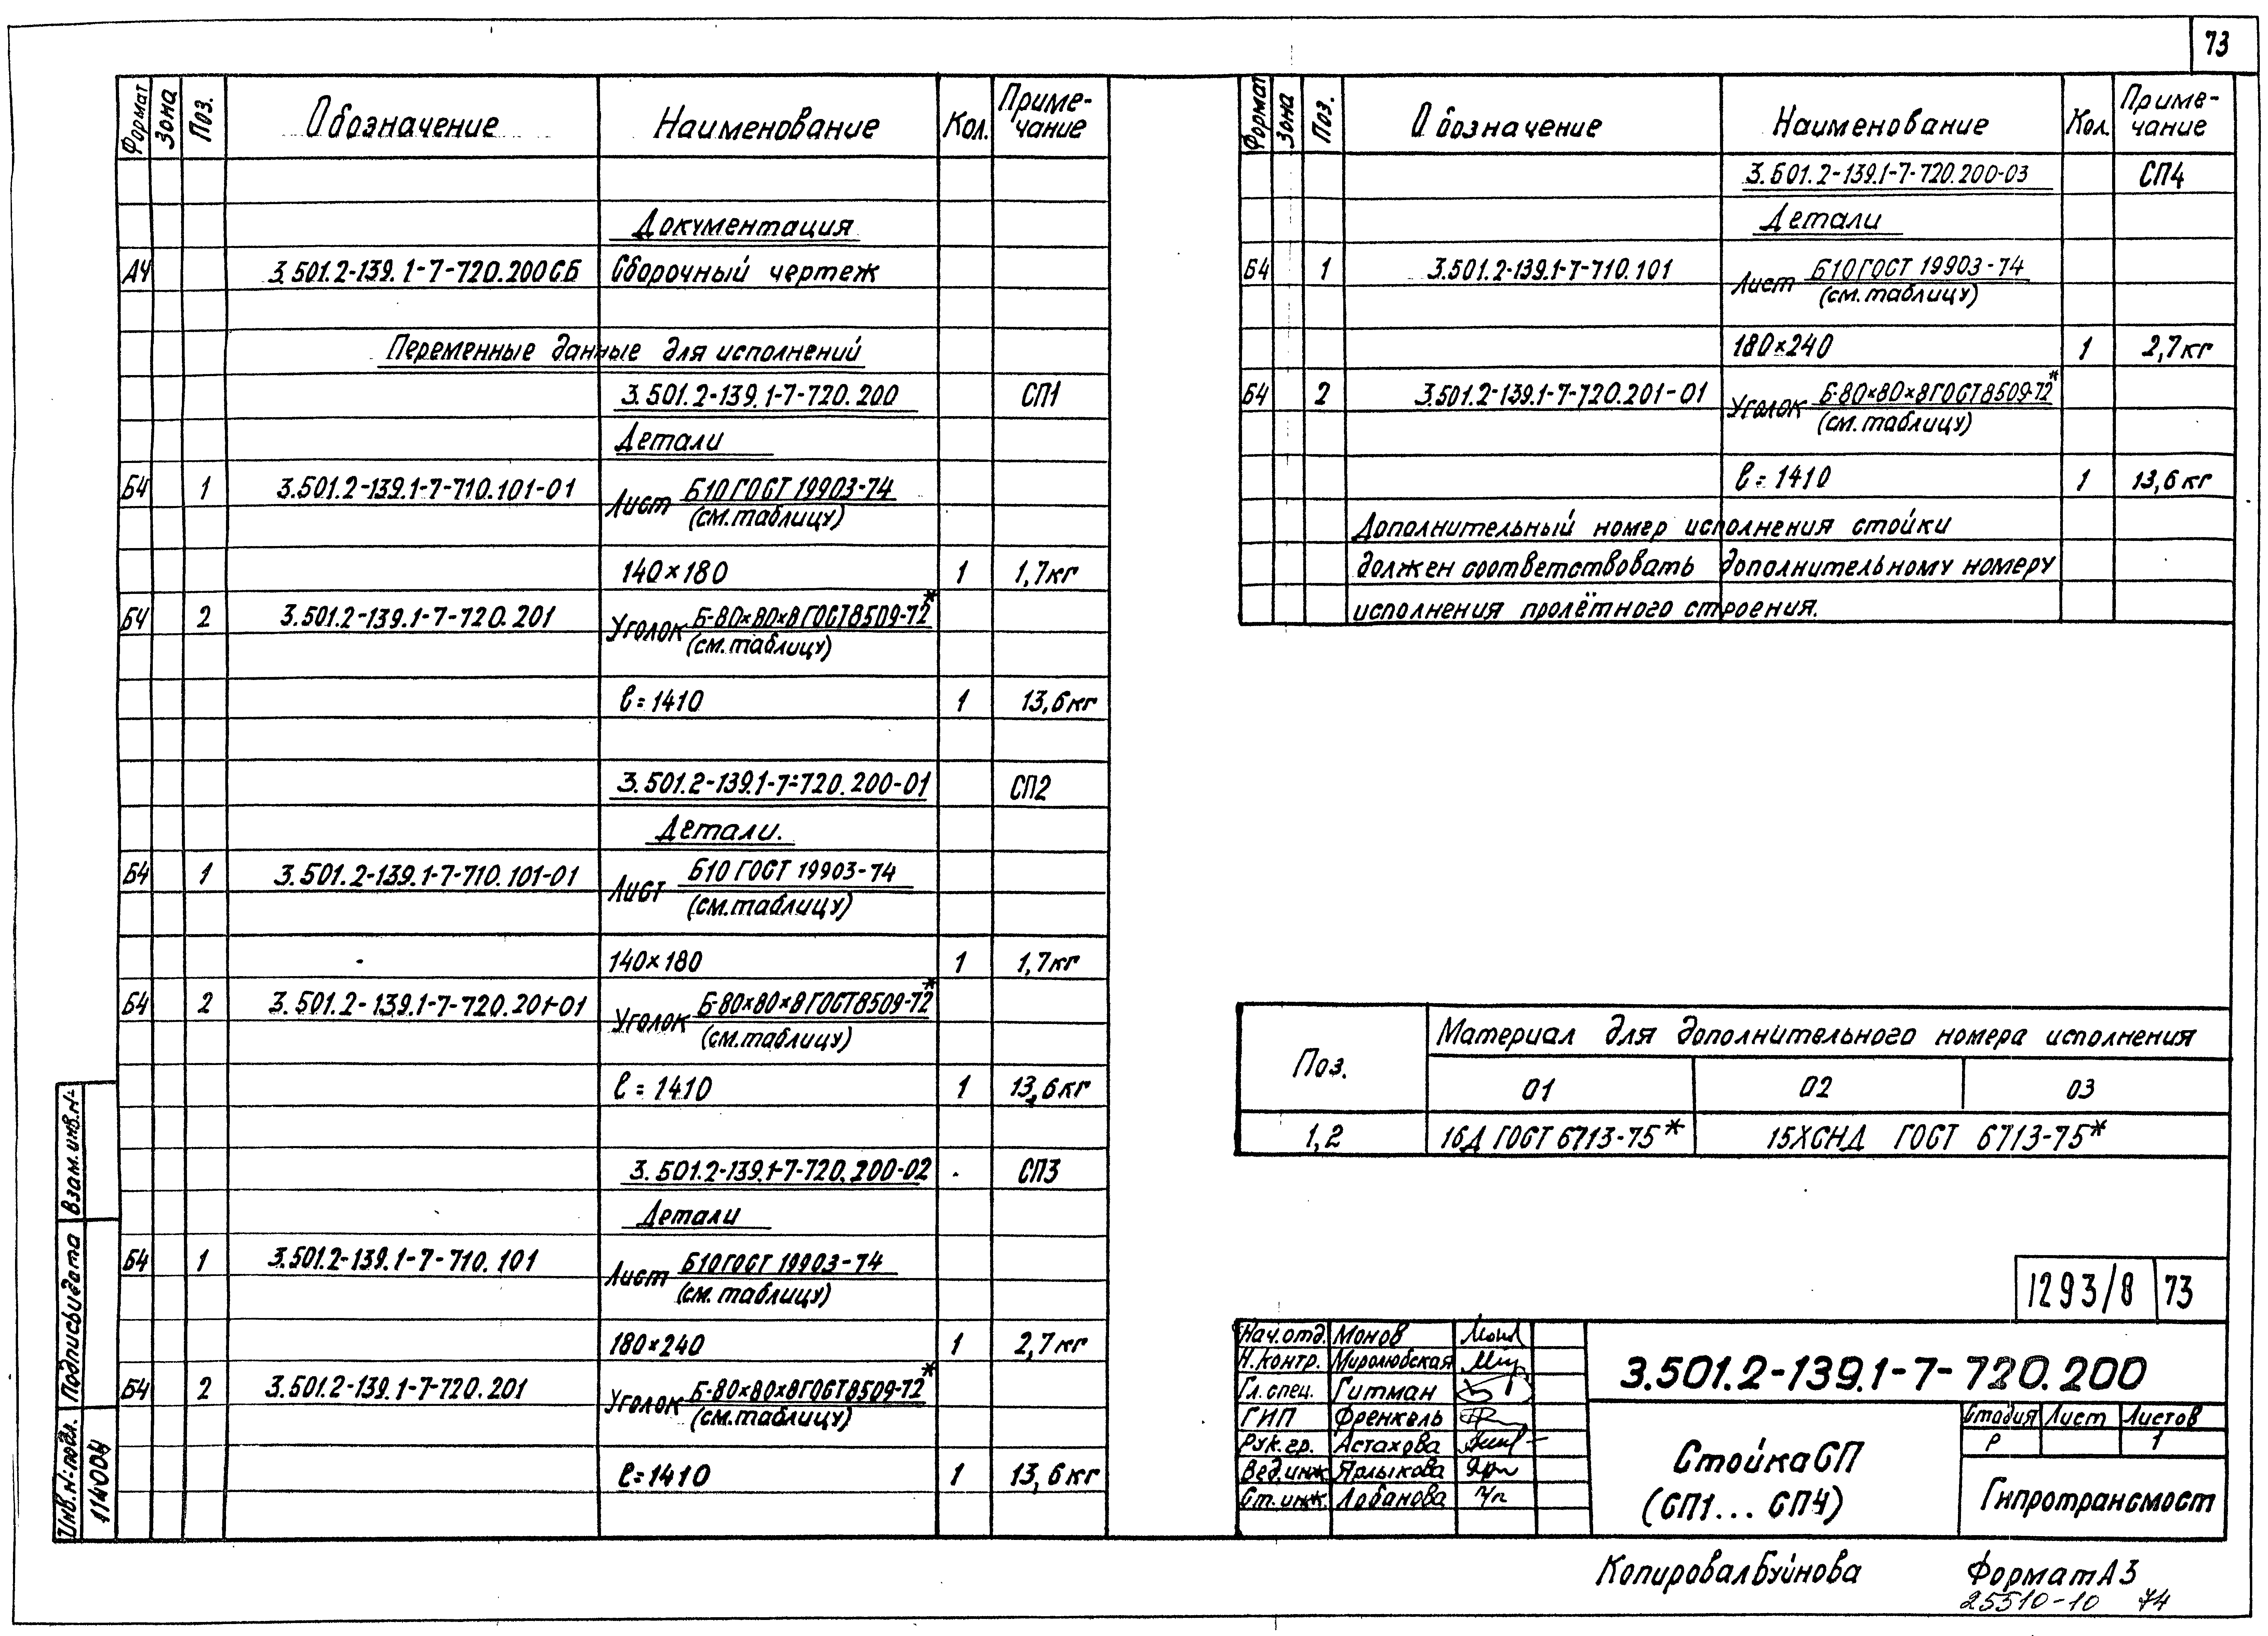 73
Формат Зона Поз. Обозначение Наименование Кол. Приме-чание
Документация
А4 3.501.2-139.1-7-720.200СБ Сборочный чертеж
Переменные данные для исполнений
3.501.2-139.1-7-720.200 СП1
Детали
Б4 1 3.501.2-139.1-7-710.101-01 Лист Б10 ГОСТ 19903-74
(см.таблицу)
140×180 1 1,7кг
Б4 2 3.501.2-139.1-7-720.201 Уголок Б-80×80×8 ГОСТ 8509-72*
(см.таблицу)
ℓ=1410 1 13,6кг
3.501.2-139.1-7-720.200-01 СП2
Детали.
Б4 1 3.501.2-139.1-7-710.101-01 Лист Б10 ГОСТ 19903-74
(см.таблицу)
140×180 1 1,7кг
Б4 2 3.501.2-139.1-7-720.201-01 Уголок Б-80×80×8 ГОСТ 8509-72*
(см.таблицу)
ℓ=1410 1 13,6кг
3.501.2-139.1-7-720.200-02 СП3
Детали
Б4 1 3.501.2-139.1-7-710.101 Лист Б10 ГОСТ 19903-74
(см.таблицу)
180×240 1 2,7кг
Б4 2 3.501.2-139.1-7-720.201 Уголок Б-80×80×8 ГОСТ 8509-72*
(см.таблицу)
ℓ=1410 1 13,6кг
Инв.№подл. Подпись и дата Взам.инв.№
114004
Формат Зона Поз. Обозначение Наименование Кол. Приме-чание
3.501.2-139.1-7-720.200-03 СП4
Детали
Б4 1 3.501.2-139.1-7-710.101 Лист Б10 ГОСТ 19903-74
(см.таблицу)
180×240 1 2,7кг
Б4 2 3.501.2-139.1-7-720.201-01 Уголок Б-80×80×8 ГОСТ 8509-72*
(см.таблицу)
ℓ=1410 1 13,6кг
Дополнительный номер исполнения стойки
должен соответствовать дополнительному номеру
исполнения пролётного строения.
Поз. Материал для дополнительного номера исполнения
01 02 03
1,2 16Д ГОСТ 6713-75* 15ХСНД ГОСТ 6713-75*
1293/8 73
Нач.отд. Монов
Н.контр. Миролюбская
Гл.спец. Гитман
ГИП Френкель
Рук.гр. Астахова
Вед.инж Ярлыкова
Ст.инж. Лобанова
3.501.2-139.1-7-720.200
Стойка СП
(СП1...СП4)
Стадия Лист Листов
Р 1
Гипротрансмост
Копировал Буйнова Формат А3
25510-10 74